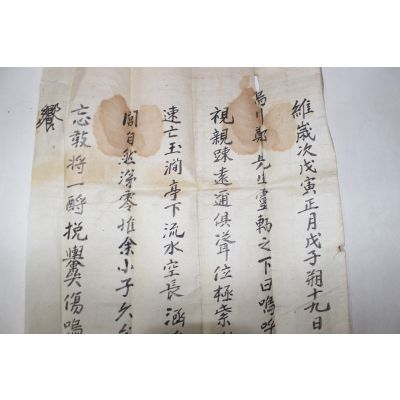 維歲次戊寅正月戊子朔十九日
烏川鄭先生靈輀之下曰嗚呼
視親踈遠邇俱聳位極崇
速亡玉澗亭下流水空長涵
閣自然淨零惟余小子久
忘敢將一酹挽輿哭傷嗚
饗